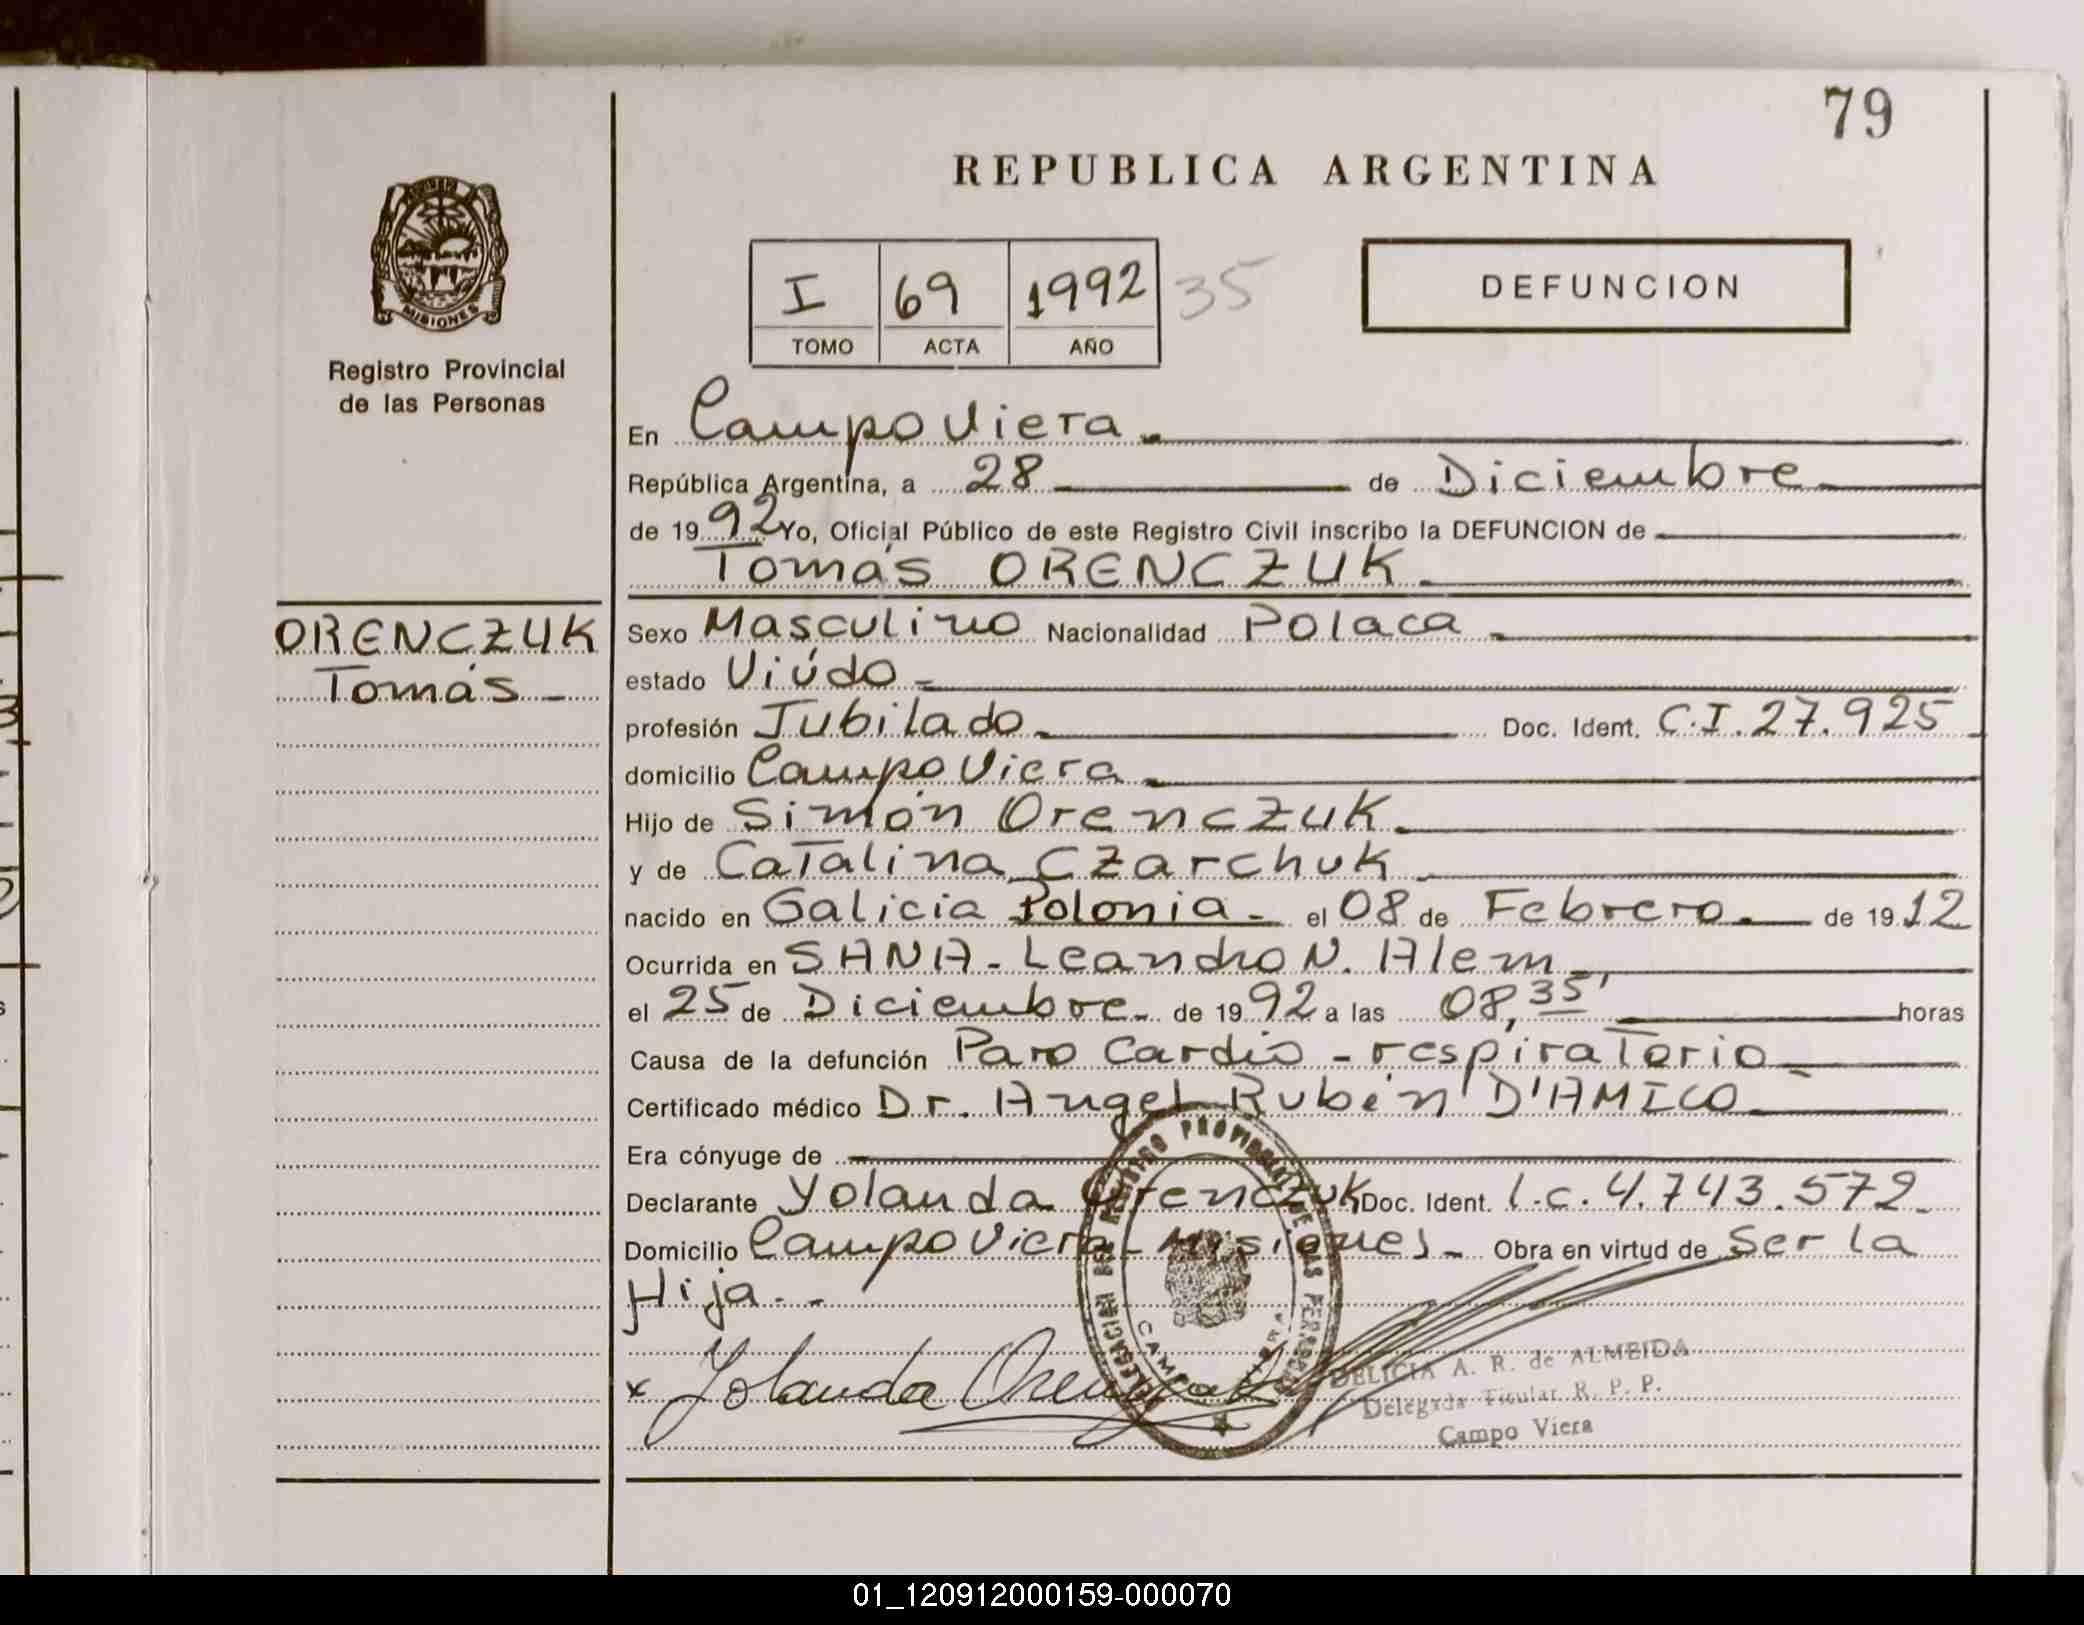 79
REPUBLICA ARGENTINA
MISIONES
Registro Provincial
de las Personas
I 69 1992 35
TOMO ACTA AÑO
DEFUNCION
En Campo Viera
República Argentina, a 28 de Diciembre
de 1992 Yo, Oficial Público de este Registro Civil inscribo la DEFUNCION de
Tomás ORENCZUK
ORENCZUK
Tomás
Sexo Masculino Nacionalidad Polaca
estado Viúdo
profesión Jubilado Doc. Ident. C.I. 27.925
domicilio Campo Viera
Hijo de Simón Orenczuk
y de Catalina Czarchuk
nacido en Galicia Polonia el 08 de Febrero de 1912
Ocurrida en SANA - Leandro N. Alem
el 25 de Diciembre de 1992 a las 08,35' horas
Causa de la defunción Paro Cardio-respiratorio
Certificado médico Dr. Angel Rubén D'AMICO
Era cónyuge de
Declarante Yolanda Orenczuk Doc. Ident. l.c. 4.743.572
Domicilio Campo Viera - Misiones - Obra en virtud de Ser la
Hija.-
DELEGACION DEL REGISTRO PROVINCIAL DE LAS PERSONAS
CAMPO VIERA
x Yolanda Orenczuk
DELICIA A. R. de ALMEIDA
Delegada Titular R. P. P.
Campo Viera
01_120912000159-000070